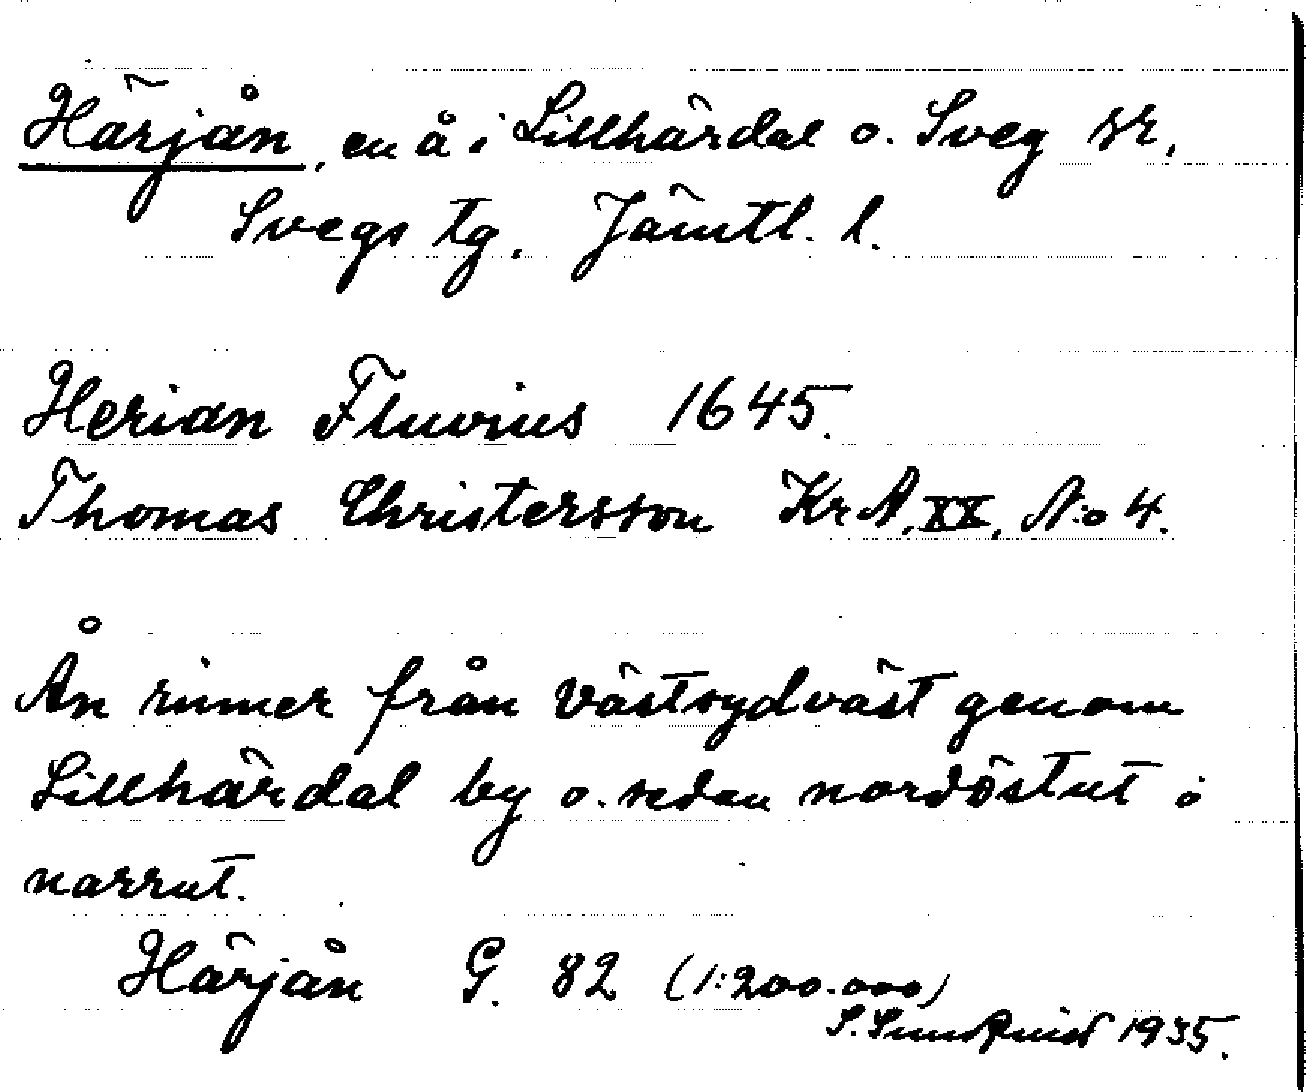 Härjån, en å i Lillhärdal o. Sveg sr,
Svegs tg. Jämtl. l.
Herian Fluvius 1645.
Thomas Christersson KrA, XX, N:o 4.
Ån rinner från västsydväst genom
Lillhärdal by o. sedan nordöstut o
norrut.
Härjån G. 82 (1:200.000)
S. Sundquist 1935.